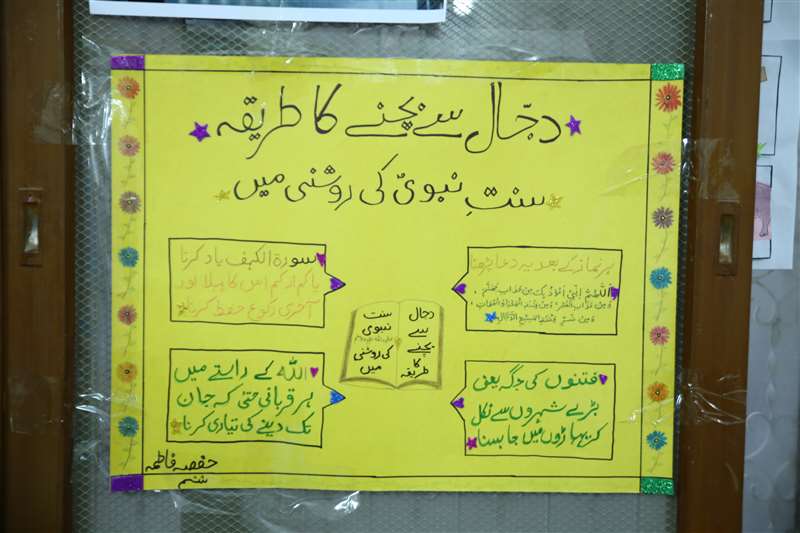 دجّال سے بچنے کا طریقہ
سنتِ نبویؐ کی روشنی میں
ہر نماز کے بعد یہ دعا پڑھنا
اَللّٰھُمَّ اِنِّیْ اَعُوْذُ بِکَ مِنْ عَذَابِ جَھَنَّمَ،
وَمِنْ عَذَابِ الْقَبْرِ، وَمِنْ فِتْنَۃِ الْمَحْیَا وَالْمَمَاتِ،
وَمِنْ شَرِّ فِتْنَۃِ الْمَسِیْحِ الدَّجَّالِ
سورۃ الکہف یاد کرنا
یا کم از کم اس کا پہلا اور
آخری رکوع حفظ کرنا
دجال
سے
بچنے
کا
طریقہ
سنت
نبوی
صلی اللہ علیہ وسلم
کی روشنی
میں
فتنوں کی جگہ یعنی
بڑے شہروں سے نکل
کر پہاڑوں میں جا بسنا
اللہ کے راستے میں
ہر قربانی حتیٰ کہ جان
تک دینے کی تیاری کرنا
حفصہ فاطمہ
ششم